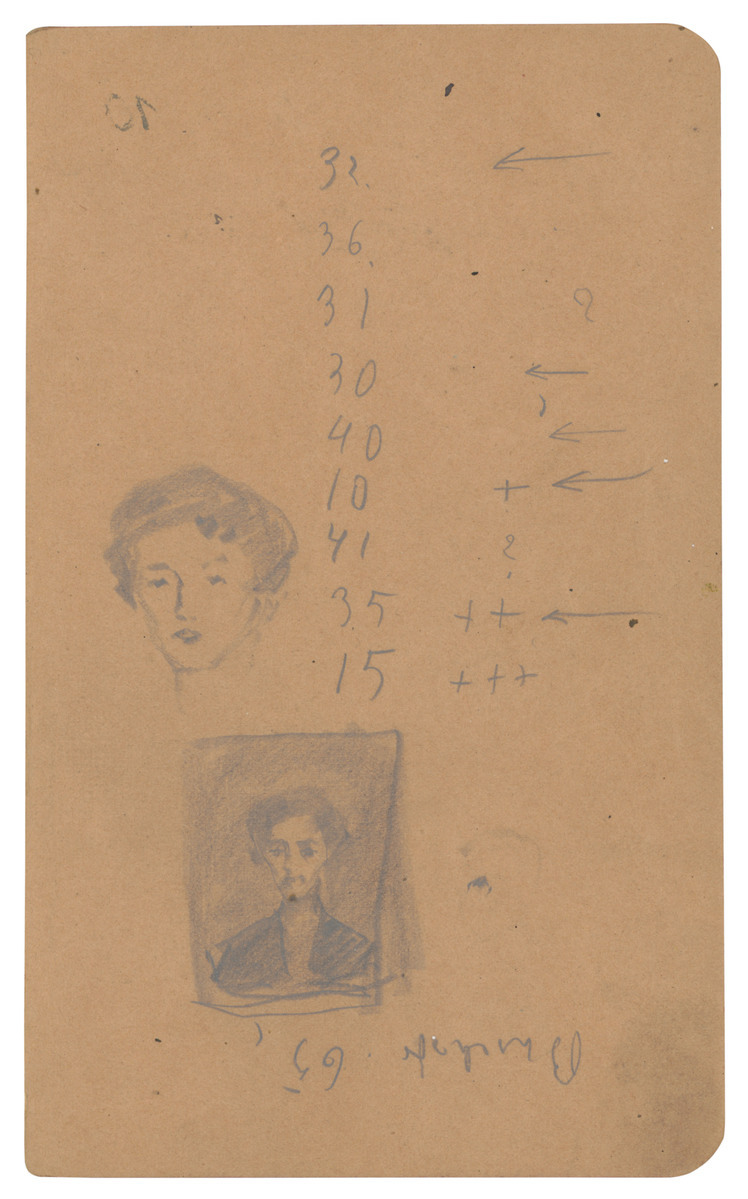 32. ←
36.
31 ?
30 ←
40 ←
10 + ←
41 ?
35 + + ←
15 + + +